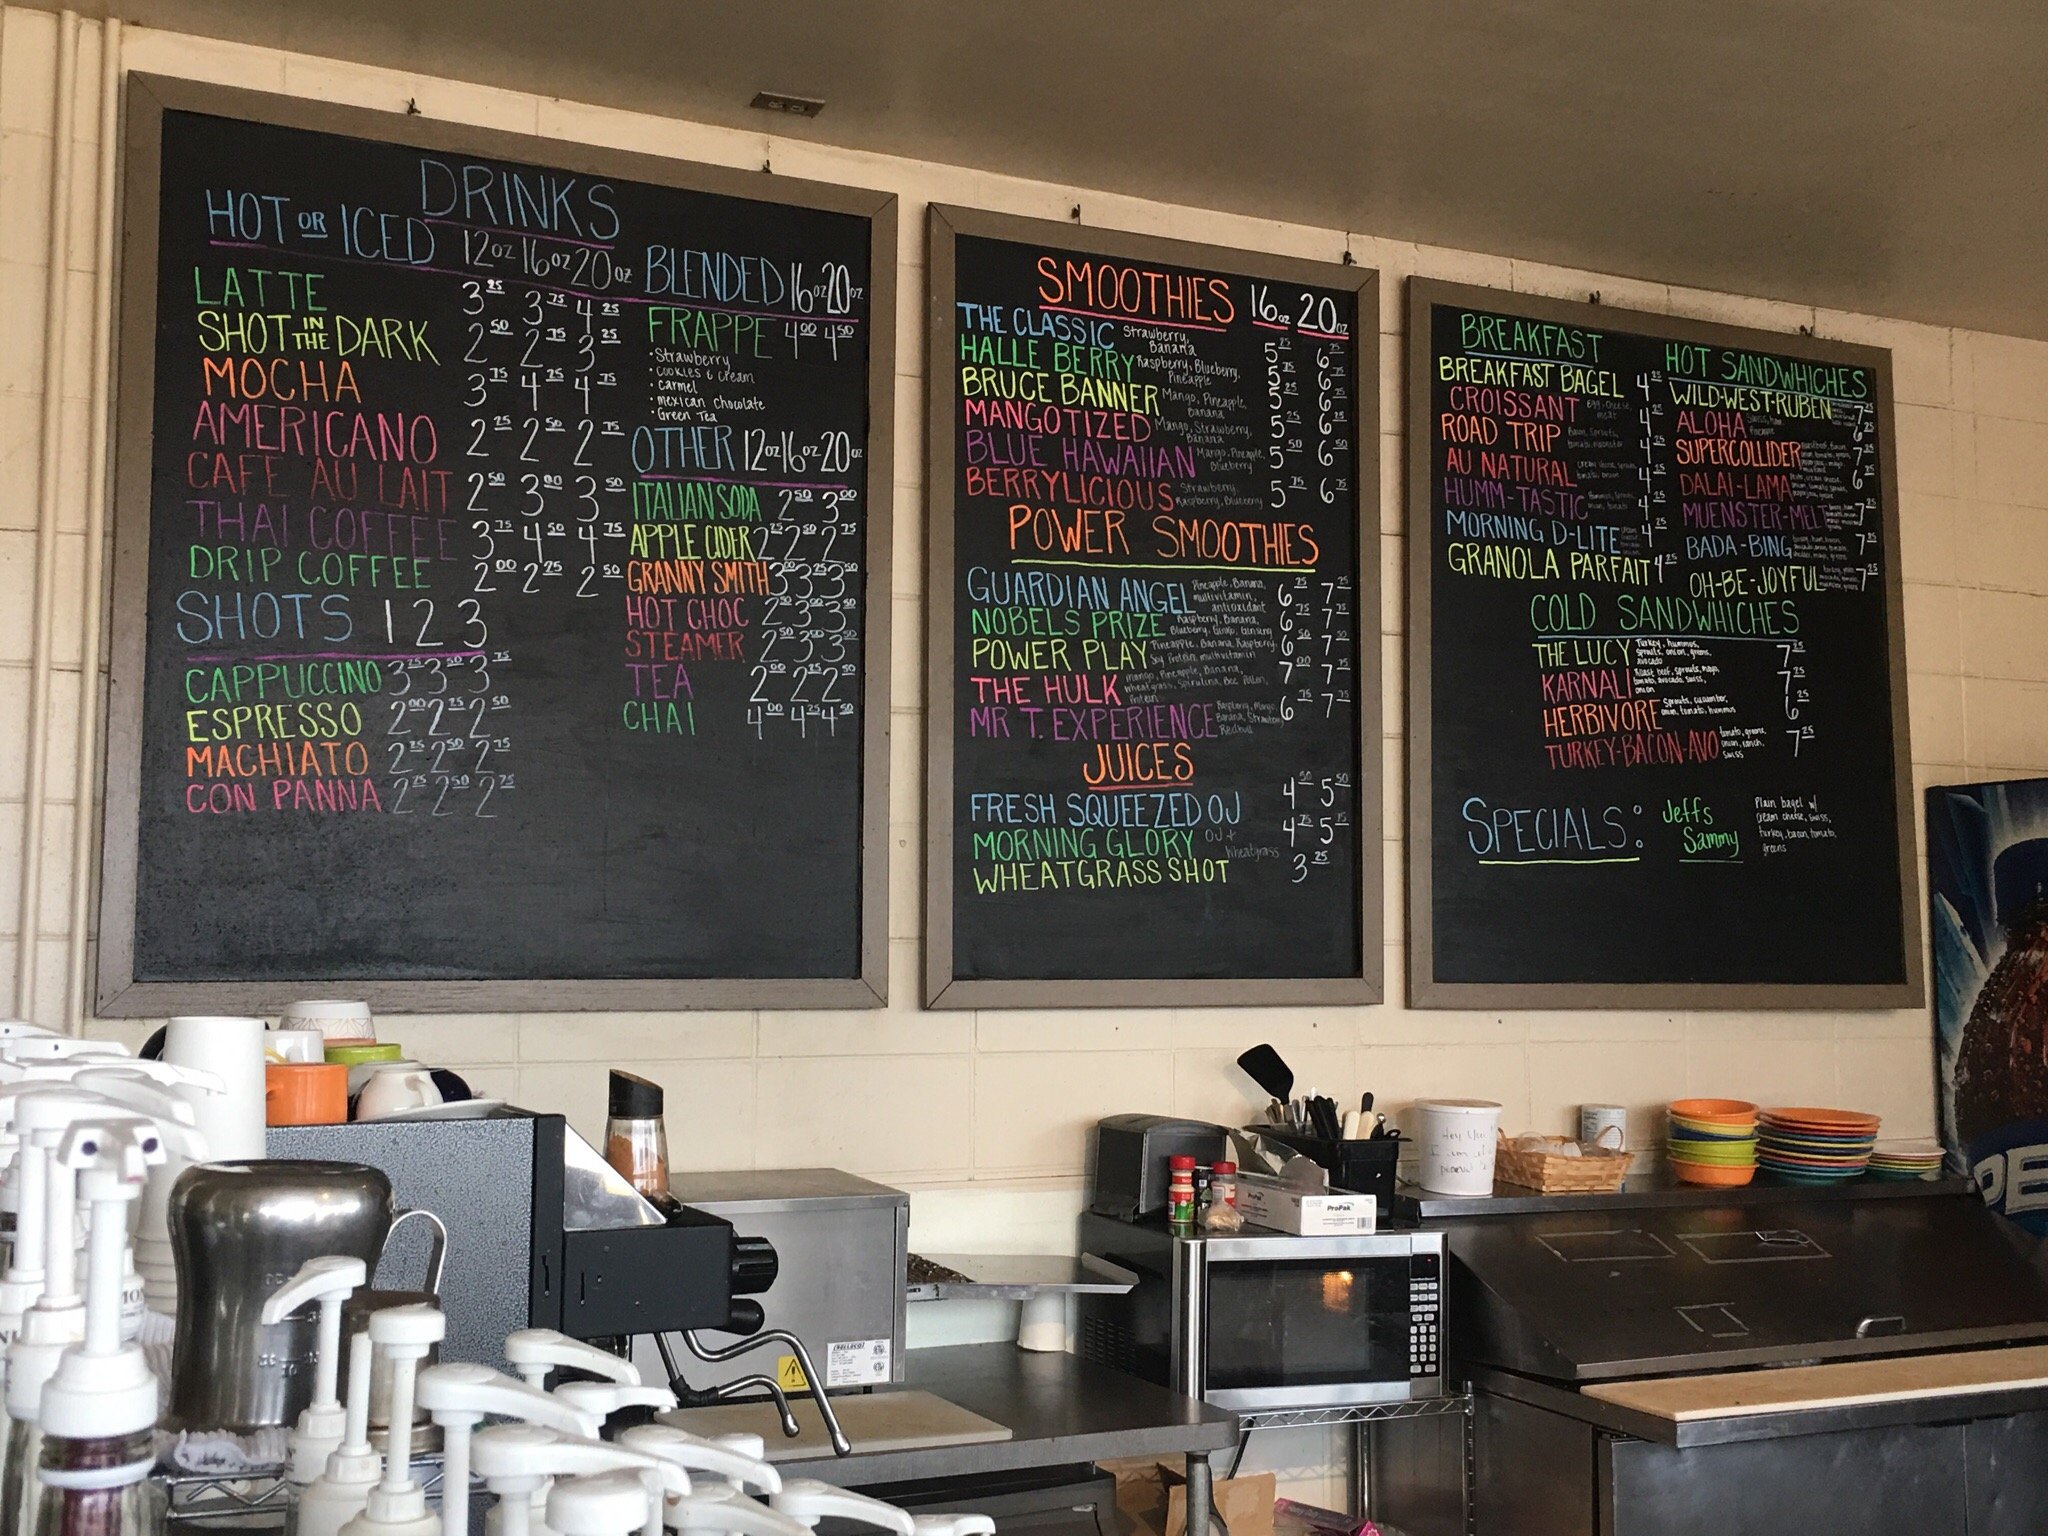 DRINKS
HOT OR ICED 12oz 16oz 20oz
LATTE 3.25 3.75 4.25
SHOT IN THE DARK 2.50 2.75 3.25
MOCHA 3.75 4.25 4.75
AMERICANO 2.25 2.50 2.75
CAFE AU LAIT 2.50 3.00 3.50
THAI COFFEE 3.75 4.50 4.75
DRIP COFFEE 2.00 2.25 2.50
SHOTS 1 2 3
CAPPUCCINO 3.25 3.50 3.75
ESPRESSO 2.00 2.25 2.50
MACHIATO 2.25 2.50 2.75
CON PANNA 2.25 2.50 2.75
BLENDED 16oz 20oz
FRAPPE 4.00 4.50
• Strawberry
• Cookies & Cream
• Carmel
• mexican chocolate
• Green Tea
OTHER 12oz 16oz 20oz
ITALIAN SODA 2.50 3.00
APPLE CIDER 2.25 2.50 2.75
GRANNY SMITH 3.00 3.25 3.50
HOT CHOC 2.50 3.00 3.50
STEAMER 2.50 3.00 3.50
TEA 2.00 2.25 2.50
CHAI 4.00 4.25 4.50
SMOOTHIES 16oz 20oz
THE CLASSIC Strawberry, Banana 5.25 6.25
HALLE BERRY Raspberry, Blueberry, Pineapple 5.75 6.75
BRUCE BANNER Mango, Pineapple, Banana 5.25 6.25
MANGOTIZED Mango, Strawberry, Banana 5.25 6.25
BLUE HAWAIIAN Mango, Pineapple, Blueberry 5.50 6.50
BERRYLICIOUS Strawberry, Raspberry, Blueberry 5.75 6.75
POWER SMOOTHIES
GUARDIAN ANGEL Pineapple, Banana, multivitamin, antioxidant 6.25 7.25
NOBELS PRIZE Raspberry, Banana, Blueberry, Ginko, Ginseng 6.75 7.75
POWER PLAY Pineapple, Banana, Raspberry, Soy Protein, multivitamin 6.50 7.50
THE HULK mango, Pineapple, Banana, wheatgrass, Spirulina, Bee Pollen, Protein 7.00 7.75
MR T. EXPERIENCE Raspberry, Mango, Banana, Strawberry, Redbull 6.75 7.75
JUICES
FRESH SQUEEZED OJ 4.50 5.50
MORNING GLORY OJ + Wheatgrass 4.75 5.75
WHEATGRASS SHOT 3.25
BREAKFAST
BREAKFAST BAGEL 4.25
CROISSANT egg, cheese, meat 4.25
ROAD TRIP Bacon, Sprouts, tomato, muenster 4.25
AU NATURAL cream cheese, sprouts, tomato, onion 4.25
HUMM-TASTIC hummus, Sprouts, onion, tomato 4.25
MORNING D-LITE 4.25
GRANOLA PARFAIT 4.25
HOT SANDWHICHES
WILD-WEST-RUBEN 7.25
ALOHA Swiss, ham, Pineapple 6.25
SUPERCOLLIDER 7.25
DALAI-LAMA 6.25
MUENSTER-MELT 7.25
BADA-BING 7.25
OH-BE-JOYFUL 7.25
COLD SANDWHICHES
THE LUCY Turkey, hummus, sprouts, onion, greens, avocado 7.25
KARNALI Roast beef, sprouts, mayo, tomato, avocado, swiss, onion 7.25
HERBIVORE Sprouts, cucumber, onion, tomato, hummus 6.25
TURKEY-BACON-AVO tomato, greens, onion, ranch, swiss 7.25
SPECIALS:
Jeffs Sammy
Plain bagel w/
cream cheese, swiss,
turkey, bacon, tomato,
greens
ProPak